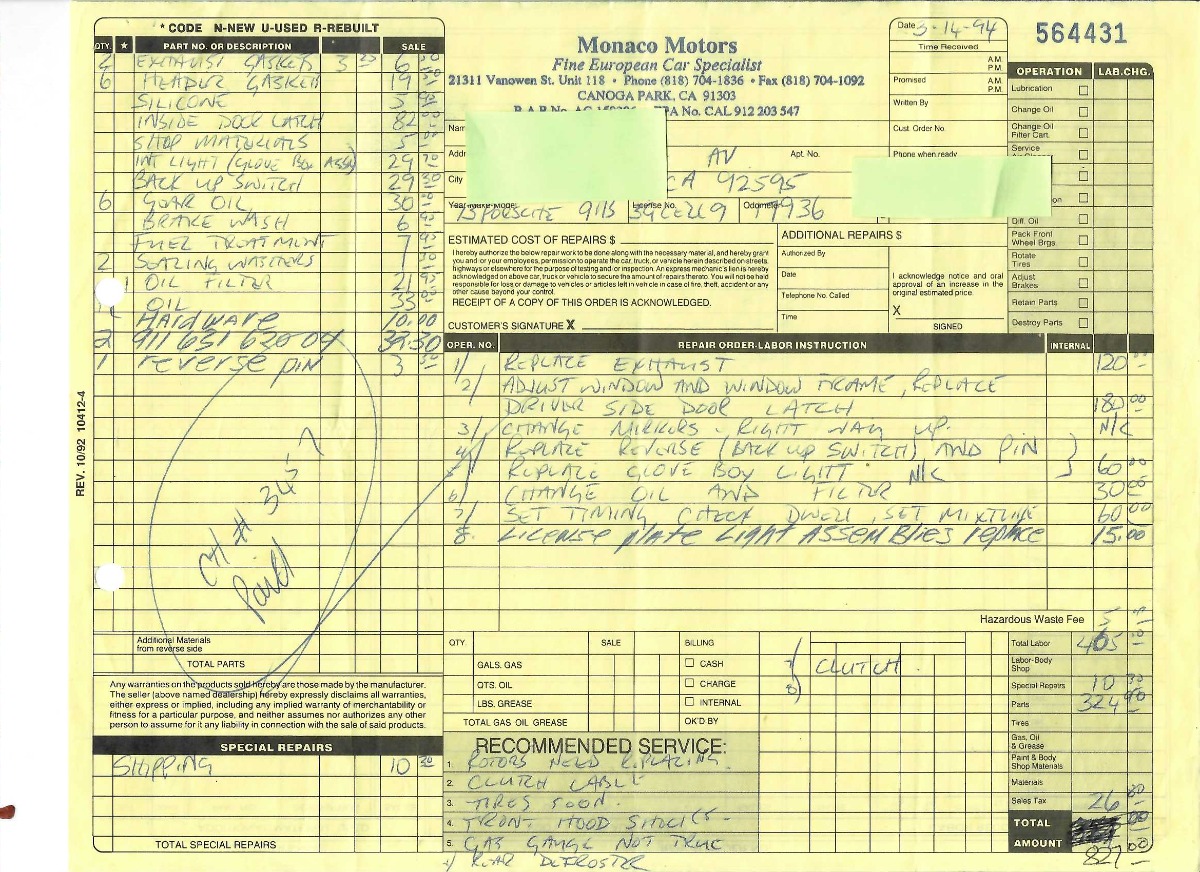 * CODE N-NEW U-USED R-REBUILT
QTY. ★ PART NO. OR DESCRIPTION SALE
2 EXHAUST GASKET 3 25 6 50
6 HEADER GASKET 19 50
SILICONE 5 95
INSIDE DOOR LATCH 82 00
SHOP MATERIALS 5 00
INT LIGHT (GLOVE BOX ASSY) 29 70
BACK UP SWITCH 29 30
6 GEAR OIL 30 00
BRAKE WASH 6 95
FUEL TREATMENT 7 95
2 SEALING WASHERS 1 50
1 OIL FILTER 21 95
OIL 33 00
HARDWARE 10.00
2 911 631 620 04 39.50
1 reverse pin 3 50
CK # 345-7
Paid
Additional Materials
from reverse side
TOTAL PARTS
Any warranties on the products sold hereby are those made by the manufacturer.
The seller (above named dealership) hereby expressly disclaims all warranties,
either express or implied, including any implied warranty of merchantability or
fitness for a particular purpose, and neither assumes nor authorizes any other
person to assume for it any liability in connection with the sale of said products.
SPECIAL REPAIRS
SHIPPING 10 30
TOTAL SPECIAL REPAIRS
REV. 10/92 10412-4
Monaco Motors
Fine European Car Specialist
21311 Vanowen St. Unit 118 • Phone (818) 704-1836 • Fax (818) 704-1092
CANOGA PARK, CA 91303
EPA No. CAL 912 203 547
Date 3-14-94
564431
Time Received
A.M.
P.M.
Promised A.M.
P.M.
Written By
Cust. Order No.
Phone when ready
Name
Addr AV Apt. No.
City CA 92595
Year-Make-Model License No. Odometer
73 PORSCHE 911S
ESTIMATED COST OF REPAIRS $
I hereby authorize the below repair work to be done along with the necessary material, and hereby grant
you and/or your employees, permission to operate the car, truck, or vehicle herein described on streets,
highways or elsewhere for the purpose of testing and/or inspection. An express mechanic's lien is hereby
acknowledged on above car, truck or vehicle to secure the amount of repairs thereto. You will not be held
responsible for loss or damage to vehicles or articles left in vehicle in case of fire, theft, accident or any
other cause beyond your control.
RECEIPT OF A COPY OF THIS ORDER IS ACKNOWLEDGED.
CUSTOMER'S SIGNATURE X
ADDITIONAL REPAIRS $
Authorized By
Date
Telephone No. Called
Time
I acknowledge notice and oral
approval of an increase in the
original estimated price.
X
SIGNED
OPERATION LAB.CHG.
Lubrication
Change Oil
Change Oil
Filter Cart.
Service
Diff. Oil
Pack Front
Wheel Brgs.
Rotate
Tires
Adjust
Brakes
Retain Parts
Destroy Parts
OPER. NO. REPAIR ORDER-LABOR INSTRUCTION INTERNAL
1/ REPLACE EXHAUST 120
2/ ADJUST WINDOW AND WINDOW FRAME, REPLACE
DRIVER SIDE DOOR LATCH 180 00
3/ CHANGE MIRRORS - RIGHT WAY UP. N/C
4/ REPLACE REVERSE (BACK UP SWITCH) AND PIN
5 REPLACE GLOVE BOX LIGHT N/C 60 00
6/ CHANGE OIL AND FILTER 30 00
7/ SET TIMING CHECK DWELL, SET MIXTURE 60 00
8. LICENSE plate LIGHT ASSEMBLIES replace 15.00
Hazardous Waste Fee 5
QTY SALE BILLING
GALS. GAS CASH
QTS. OIL CHARGE
LBS. GREASE INTERNAL
TOTAL GAS OIL GREASE OK'D BY
7/ CLUTCH
8/
Total Labor 465
Labor-Body
Shop
Special Repairs 10 30
Parts 324 90
Tires
Gas, Oil
& Grease
Paint & Body
Shop Materials
Materials
Sales Tax 26 80
TOTAL
AMOUNT 827 00
RECOMMENDED SERVICE:
1. ROTORS NEED REPLACING
2. CLUTCH CABLE
3. TIRES SOON.
4. FRONT HOOD SHOCKS -
5. GAS GAUGE NOT TRUE
REAR DEFROSTER